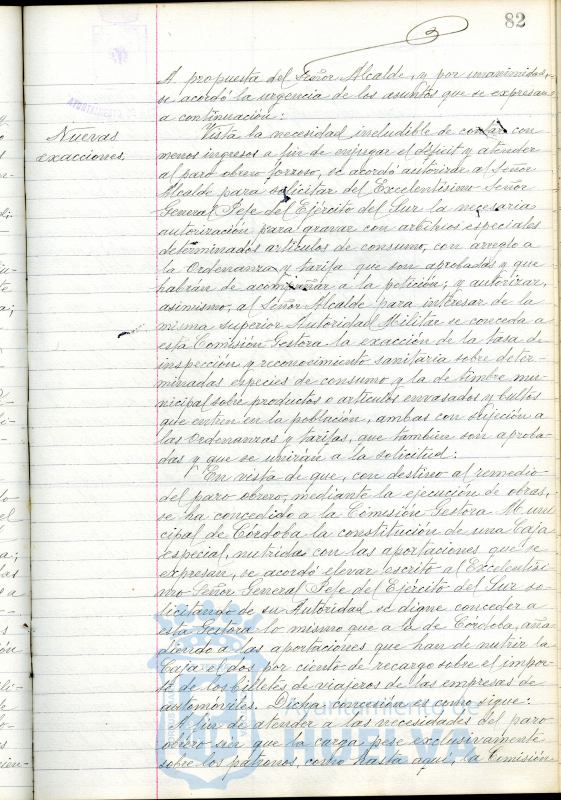 82
A propuesta del Señor Alcalde, y por unanimidad,
se acordó la urgencia de los asuntos que se expresan
a continuación:
Nuevas
exacciones.
Vista la necesidad ineludible de contar con
menos ingresos a fin de enjugar el déficit y atender
al paro obrero forzoso, se acordó autorizar al Señor
Alcalde para solicitar del Excelentísimo Señor
General Jefe del Ejército del Sur la necesaria
autorización para gravar con arbitrios especiales
determinados artículos de consumo, con arreglo a
la Ordenanza y tarifa que son aprobadas y que
habrán de acompañar a la petición; y autorizar,
asimismo, al Señor Alcalde para interesar de la
misma superior Autoridad Militar se conceda a
esta Comisión Gestora la exacción de la tasa de
inspección y reconocimiento sanitario sobre deter-
minadas especies de consumo y la de timbre mu-
nicipal sobre productos o artículos envasados y bultos
que entren en la población, ambas con sujeción a
las Ordenanzas y tarifas, que también son aproba-
das y que se unirán a la solicitud.
En vista de que, con destino al remedio
del paro obrero, mediante la ejecución de obras,
se ha concedido a la Comisión Gestora Muni
cipal de Córdoba la constitución de una Caja
especial, nutrida con las aportaciones que se
expresan, se acordó elevar escrito al Excelentísi
mo Señor General Jefe del Ejército del Sur so-
licitando de su Autoridad se digne conceder a
esta Gestora lo mismo que a la de Córdoba, aña
diendo a las aportaciones que han de nutrir la
Caja el dos por ciento de recargo sobre el impor-
te de los billetes de viajeros de las empresas de
automóviles. Dicha concesión es como sigue:
A fin de atender a las necesidades del paro
obrero sin que la carga pese exclusivamente
sobre los patronos, como hasta aquí, la Comisión
Ayuntamiento de
HUELVA